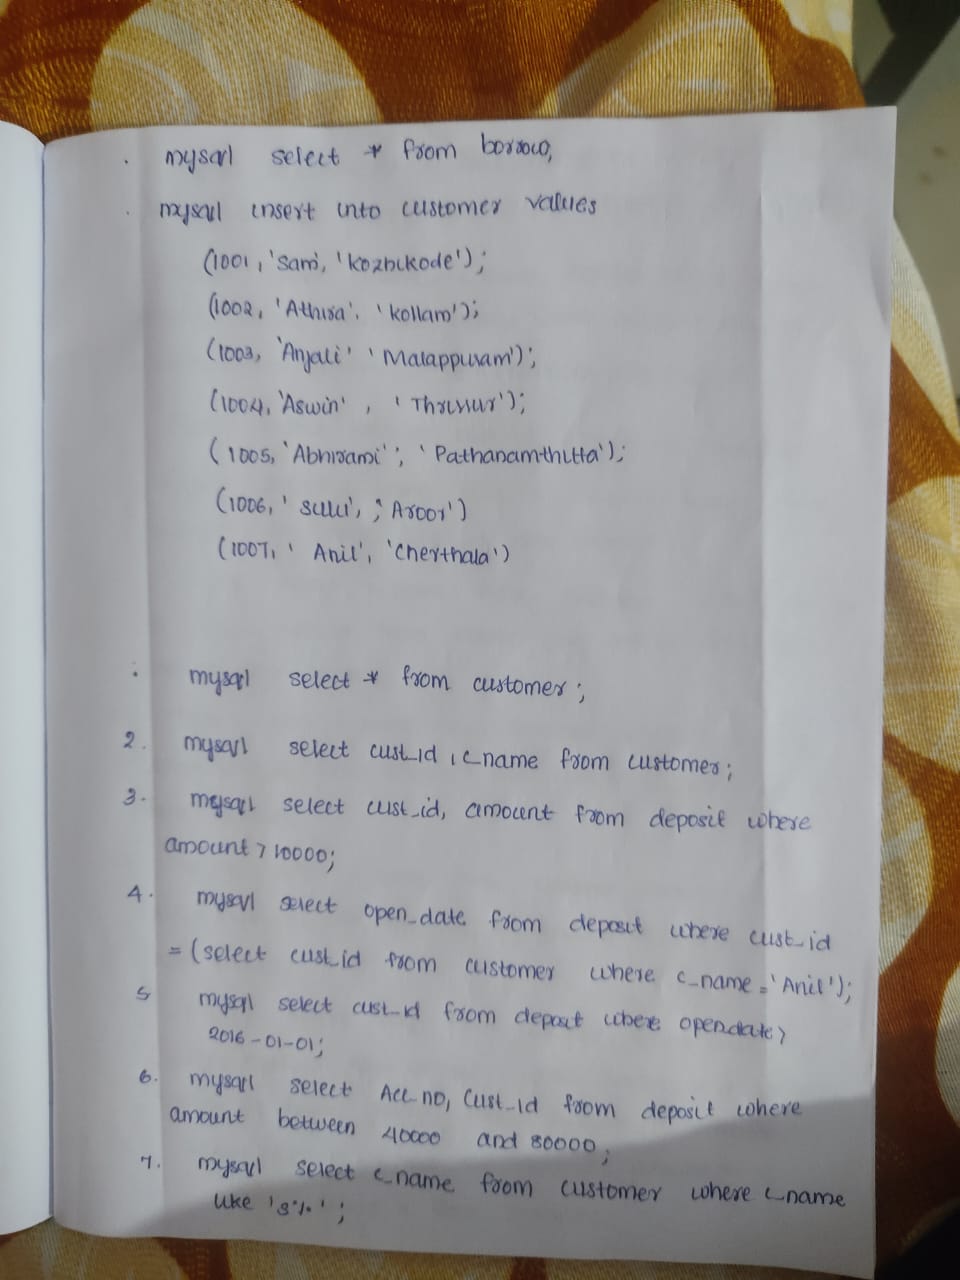 . mysql select * from borrow,
. mysql insert into customer values
(1001, 'Sam', 'kozhikode');
(1002, 'Athira', 'kollam');
(1003, 'Anjali' 'Malappuram');
(1004, 'Aswin' , 'Thrissur');
(1005, 'Abhirami' ; 'Pathanamthitta');
(1006, 'Sulu', ; Aroor')
(1007, ' Anil', 'Cherthala')
: mysql select * from customer ;
2. mysql select cust_id , c_name from customer ;
3. mysql select cust_id, amount from deposit where
amount > 10000;
4. mysql select open_date from deposit where cust_id
= (select cust_id from customer where c_name = 'Anil');
5 mysql select cust_id from deposit where open_date >
2016-01-01;
6. mysql select Acc_no, Cust_id from deposit where
amount between 40000 and 80000;
7. mysql select c_name from customer where c_name
like 'S%' ;